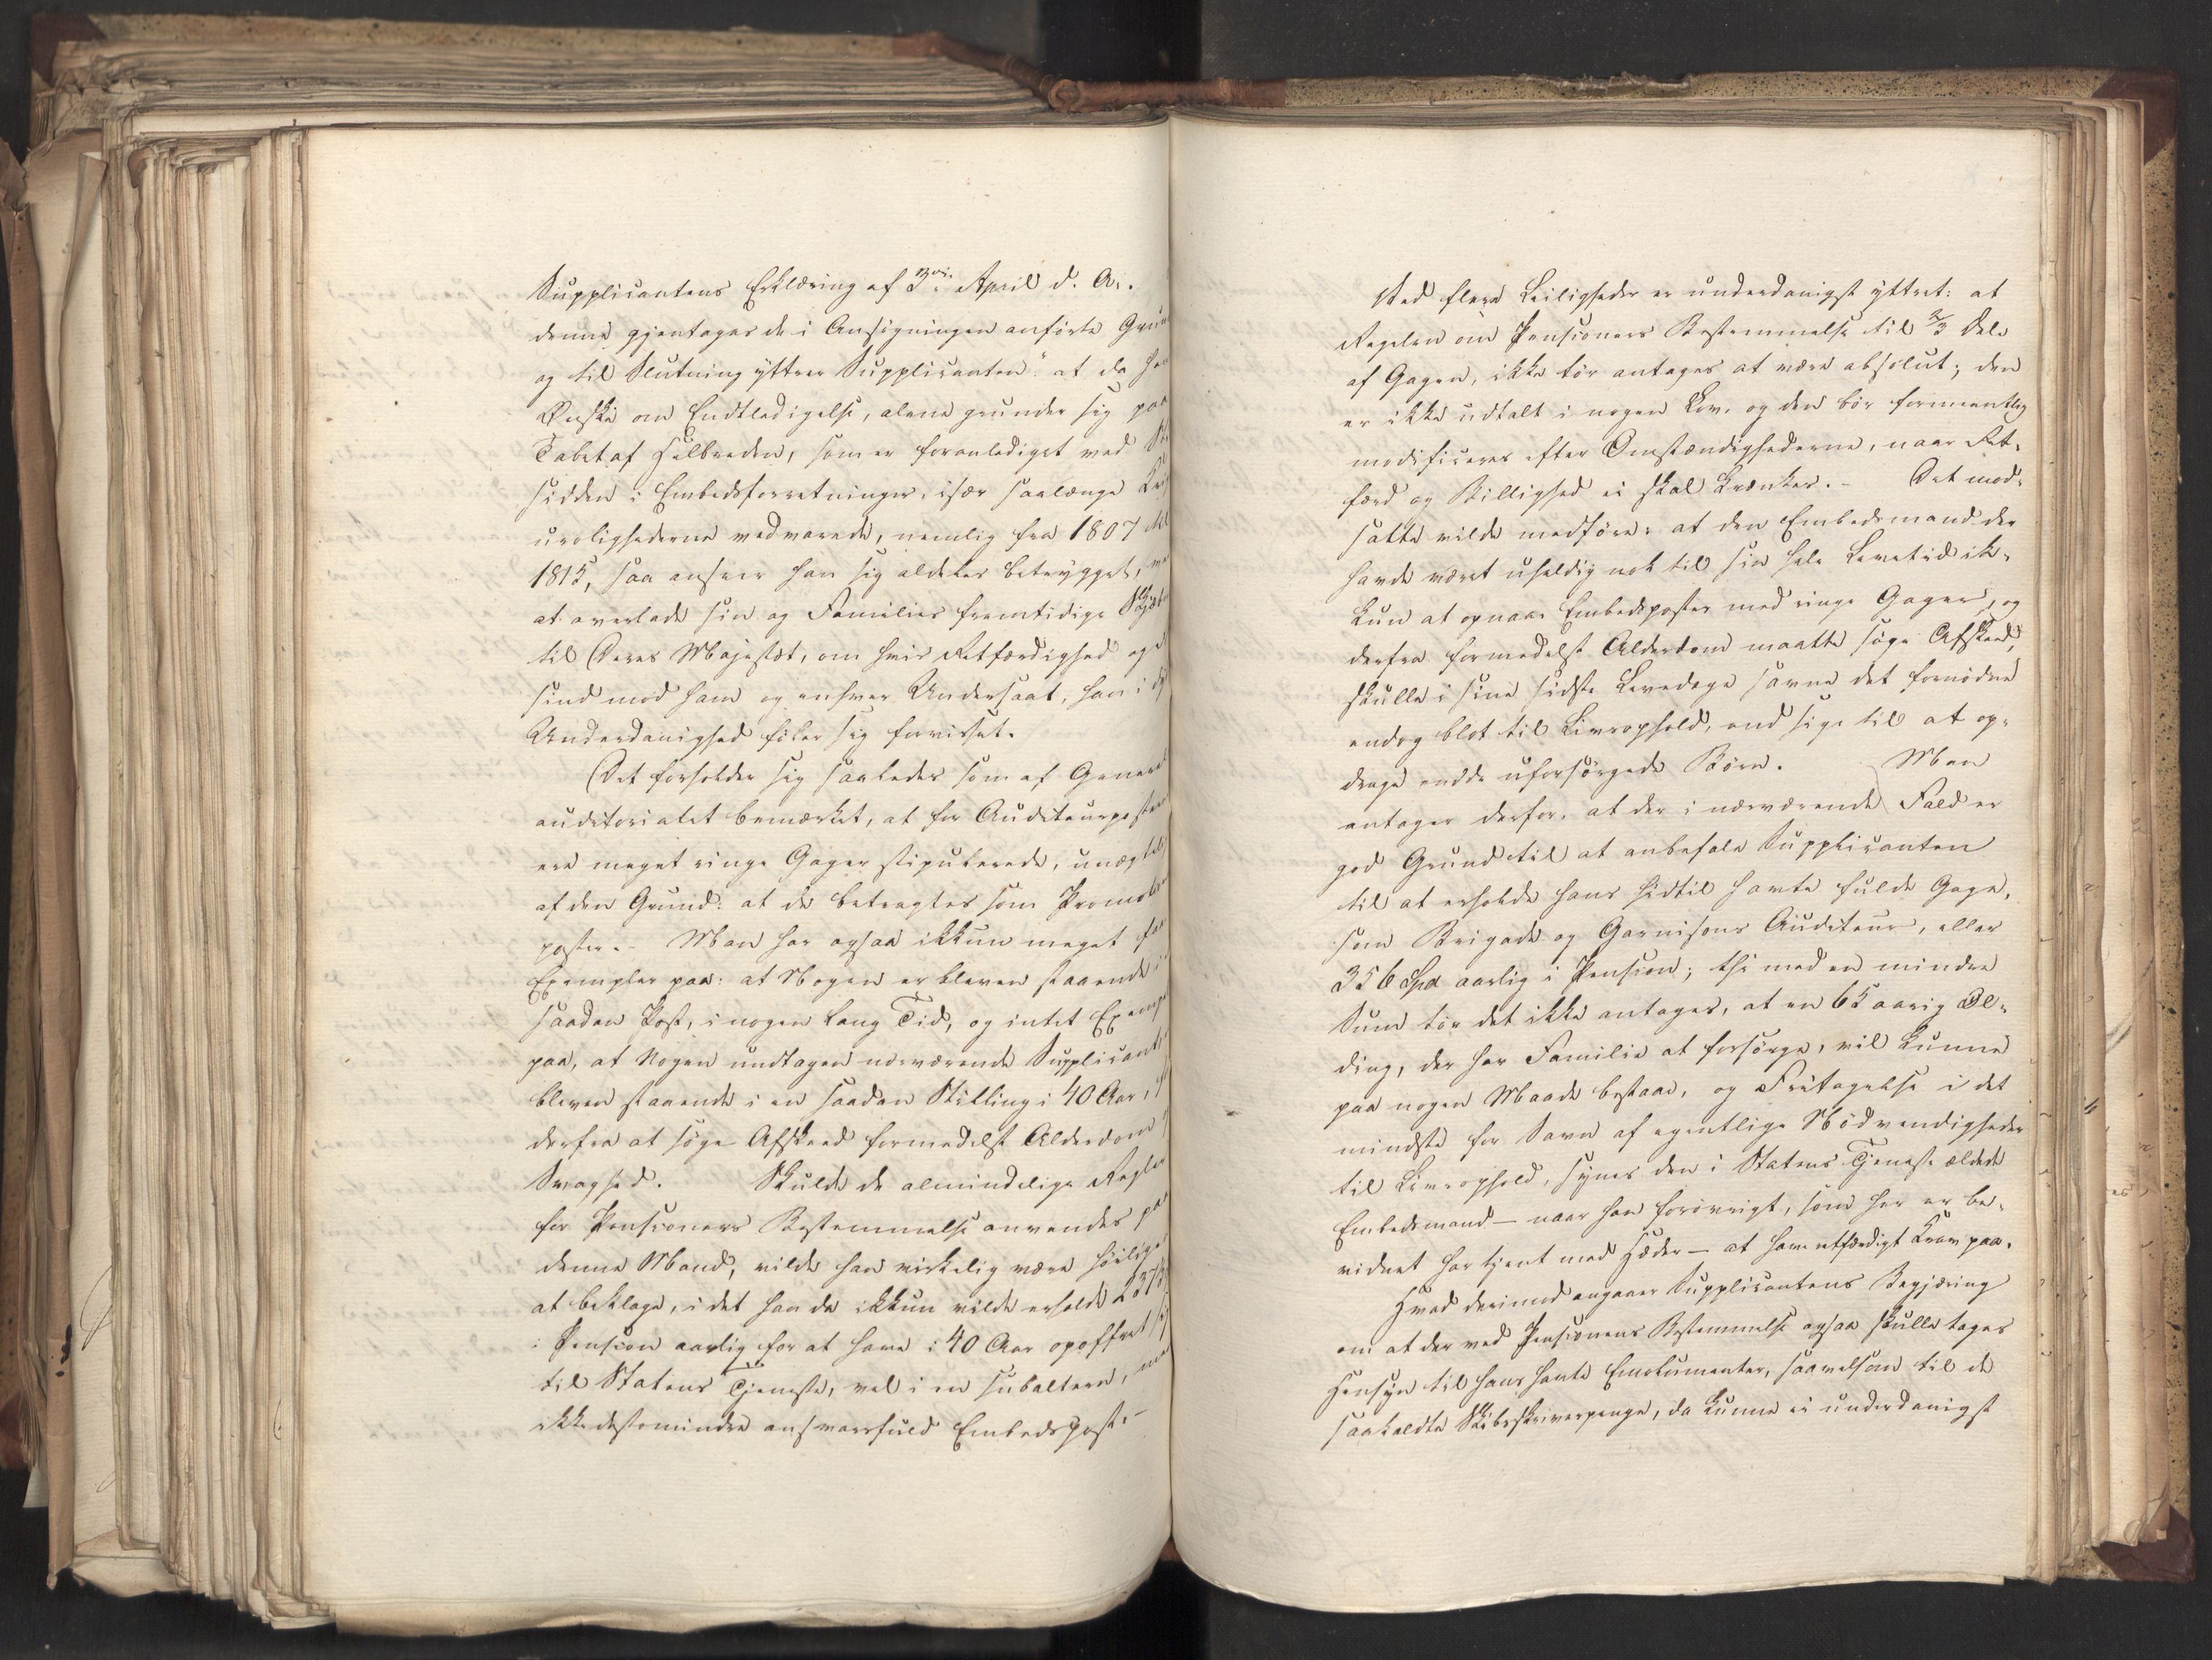 Supplicantens Erklæring af 3die April d. A.
denne gjentager de i Ansøgningen anførte
og til Slutning yttrer Supplicanten: at da
Ønske om Endtledigelse, alene grunder sig paa
Tabet af Helbreden, som er foranlediget ved
sidden i Embedsforretninger, især saalænge
urolighederne vedvarede, nemlig fra 1807 til
1815, saa anseer han sig aldeles betrygget, ved
at overlade sin og Families fremtidige
til Deres Majestæt, om hvis Retfærdighed og
sind mod ham og enhver Undersaat, han i
Underdanighed føler sig forvisset.
Det forholder sig saaledes som af General
auditorialet bemærket, at for Auditeurposterne
ere meget ringe Gager stipulerede, unægtelig
af den Grund: at de betragtes som Promotions
poster.- Man har ogsaa ikkun meget faa
Exempler paa: at Nogen er bleven staaende i
saadan Post, i nogen lang Tid, og intet Exempel
paa, at Nogen undtagen nærværende Supplicant
bleven staaende i en saadan Stilling i 40 Aar,
derfra at søge Afskeed formedelst Alderdom
Svaghed. Skulde de almindelige Regler
for Pensioners Bestemmelse anvendes paa
denne Mand, vilde han virkelig være høiligen
at beklage, i det han da ikkun vilde erholde 237
i Pension aarlig for at have i 40 Aar opoffret sig
til Statens Tjeneste, vel i en subaltern, men
ikkedestomindre ansvarsfuld Embedspost.-
Ved flere Leiligheder er underdanigst yttret: at
Regelen om Pensioners Bestemmelse til 2/3 Dele
af Gagen, ikke tør antages at være absolut; den
er ikke udtalt i nogen Lov, og den bør formeentlig
modificeres efter Omstændighederne, naar Ret-
færd og Billighed ei skal krænkes.- Det mod-
satte vilde medføre: at den Embedsmand der
havde været uheldig nok til sin hele Levetid ik-
kun at opnaae Embedsposter med ringe Gager, og
derfra formedelst Alderdom maatte søge Afskeed,
skulle i sine sidste Levedage savne det fornødne
endog blot til Livsophold, end sige til at op-
drage endde uforsørgede Børn. Man
antager derfor, at der i nærværende Fald er
god Grund til at anbefale Supplicanten
til at erholde hans hidtil havte fulde Gage,
som Brigade og Garnisons Auditeur, eller
356 Spd aarlig i Pension; thi med en mindre
Sum tør det ikke antages, at en 65 aarig Ol-
ding, der har Familie at forsørge, vil kunne
paa nogen Maade bestaae, og Fritagelse i det
mindste for Savn af egentlige Nødvendigheder
til Livsophold, synes den i Statens Tjeneste ældede
Embedsmand – naar han forøvrigt, som her er be-
vidnet har tjent med Hæder – at have retfærdigt Krav paa.
Hvad derimod angaaer Supplicantens Begjæring
om at der ved Pensionens Bestemmelse ogsaa skulle tages
Hensyn til hans havte Emolumenter, saavelsom til de
saakaldte Skibsskriverpenge, da kunne ei underdanigst